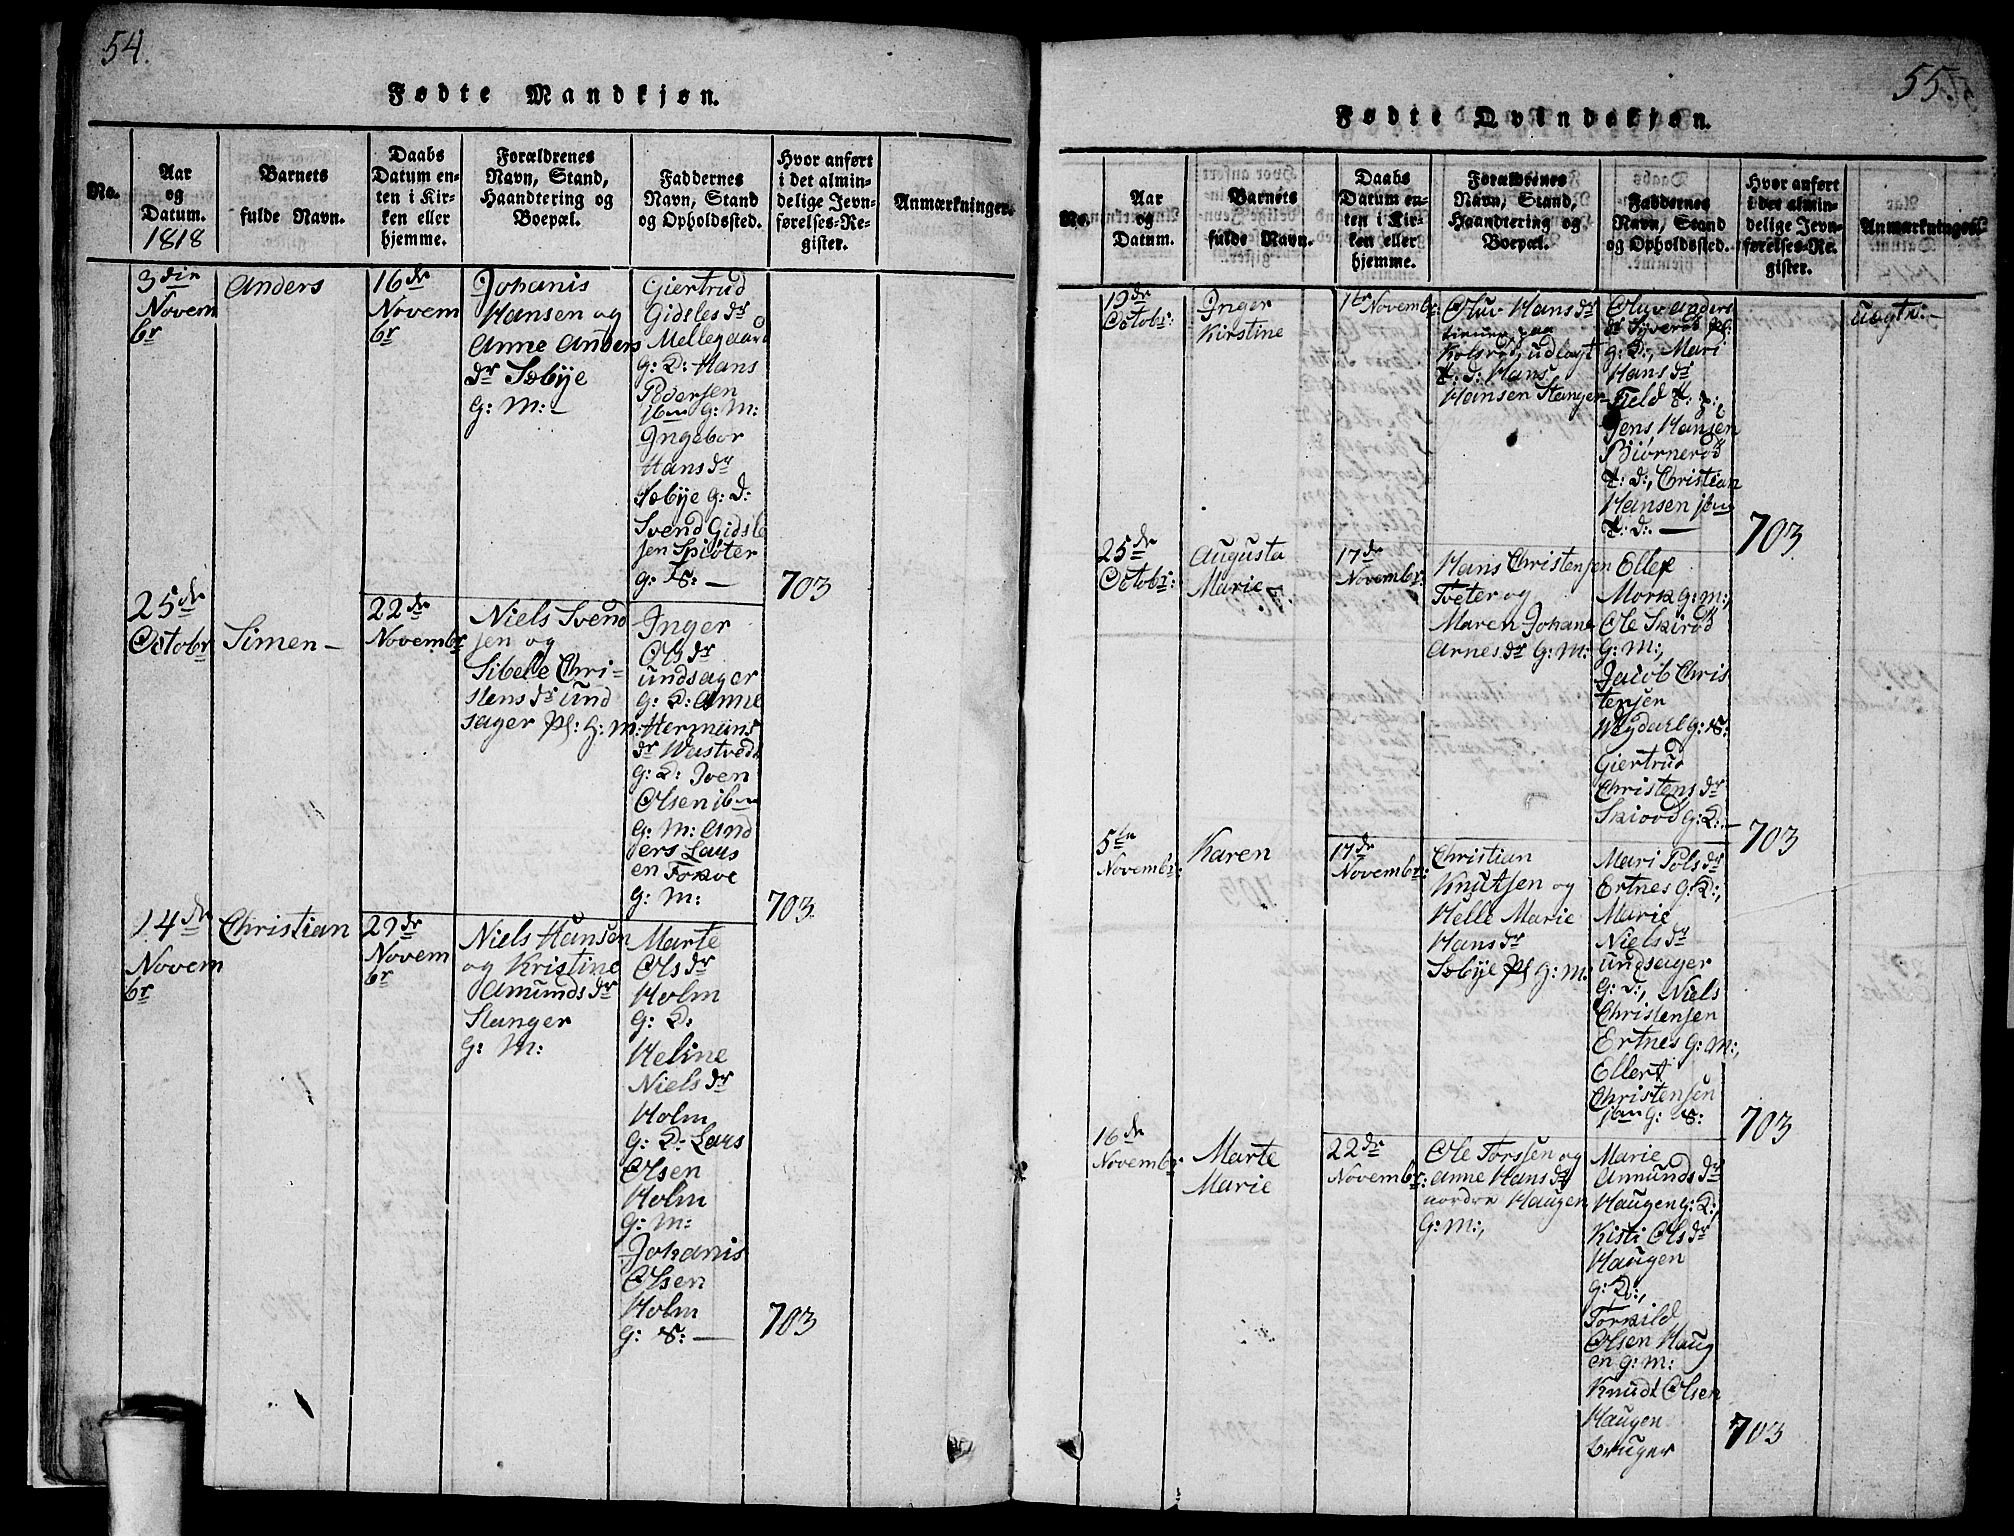 54.
Fødte Mandkjøn.
No.
Aar
og
Datum.
1818
Barnets
fulde Navn.
Daabs
Datum en-
ten i Kir-
ken eller
hjemme.
Forældrenes
Navn, Stand,
Haandtering og
Boepæl.
Faddernes
Navn, Stand
og Opholdssted.
Hvor anført
i det almin-
delige Jevn-
førelses-Re-
gister.
Anmærkninger.
3die
Novem
br
Anders
16dr
Novem
br
Johanis
Hansen og
Anne Anders
dr Sæbye
G: M: –
Giertrud
Gidsles dr
Mellegaard
g: D: Hans
Pedersen
ibm g: M:
Ingebor
Hans dr
Sæbye g: D:
Svend Gidsle
sen Spiøter
g: S: –
703
25de
Octobr
Simen –
22dr
Novembr
Niels Svend
sen og
Sibele Chri-
stens dr Und
sager pl: G: M:
Inger
Ols dr
Undsager
g: D: Anne
Hermans
dr Wastvedt
g: D: Iven
Olsen ibm
g: M: And
ers Lars
en Tokve
g: M:
703
14de
Novem
br
Christian
29dr
Novem
br
Niels Hansen
og Kristine
Amunds dr
Stanger
G: M:
Marte
Ols dr
Holm
g: D:
Heline
Niels dr
Holm
g: D: Lars
Olsen
Holm
g: M:
Johanis
Olsen
Holm
g: S: –
703
55.
Fødte Qvindekjøn.
No.
Aar
og
Datum.
Barnets
fulde Navn.
Daabs
Datum en-
ten i Kir-
ken eller
hjemme.
Forældrenes
Navn, Stand,
Haandtering og
Boepæl.
Faddernes
Navn, Stand
og Opholdssted.
Hvor anført
i det almin-
delige Jevn-
førelses-Re-
gister.
Anmærkninger.
Octobr:
Inger
Kirstine
1tr Novembr:
Oluv Hans dr
tienene paa
Kolsrød, udlagt
t: d: Hans
Hansen Stanger
Oluv Anders
dr Syverød pl:
g: D:, Mari
Hans dr
Field t: d:,
Jens Hansen
Biørnerød
t: d:, Christian
Hansen ibm
t: d: –
703
Uægte: –
25de
Octobr:
Augusta
Marie –
17dr
Novembr:
Hans Christensen
Tveter og
Maren Johane
Arnes dr G: M:
Ellef
Mork g: m:,
Ole Skirød
G: M:,
Jacob Chris
tensen
Weydahl g: S:
Giertrud
Christens dr
Skirød g: D: –
703
5te
Novembr:
Karen
17dr
Novembr:
Christian
Knutsen og
Helle Marie
Hans dr
Sæbye Pl G: M:
Mari Pols dr
Ertnes g: D:,
Marie
Niels dr
Undsager
g: D:, Niels
Christensen
Ertnes g: M:,
Ellert
Christensen
ibm g: S:
703
16de
Novembr
Marte
Marie
22dr
Novembr:
Ole Torssen og
Anne Hans dr
nordre Haugen
G: M:,
Marie
Anmunds dr
Haugen g: D:
Kisti Ols dr
Haugen
g: D:,
Torkild
Olsen Haug
en g: m:
Knudt Olsen
Haugen
bruger
703